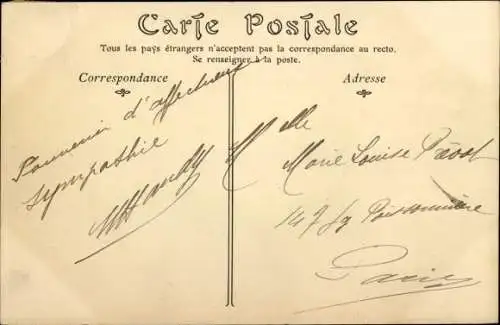 Carte Postale
Tous les pays étrangers n'acceptent pas la correspondance au recto.
Se renseigner à la poste.
Correspondance
Adresse
Souvenir d'affectueuse
sympathie
Melle
Marie Louise Prévot
147 Fg Poissonnière
Paris